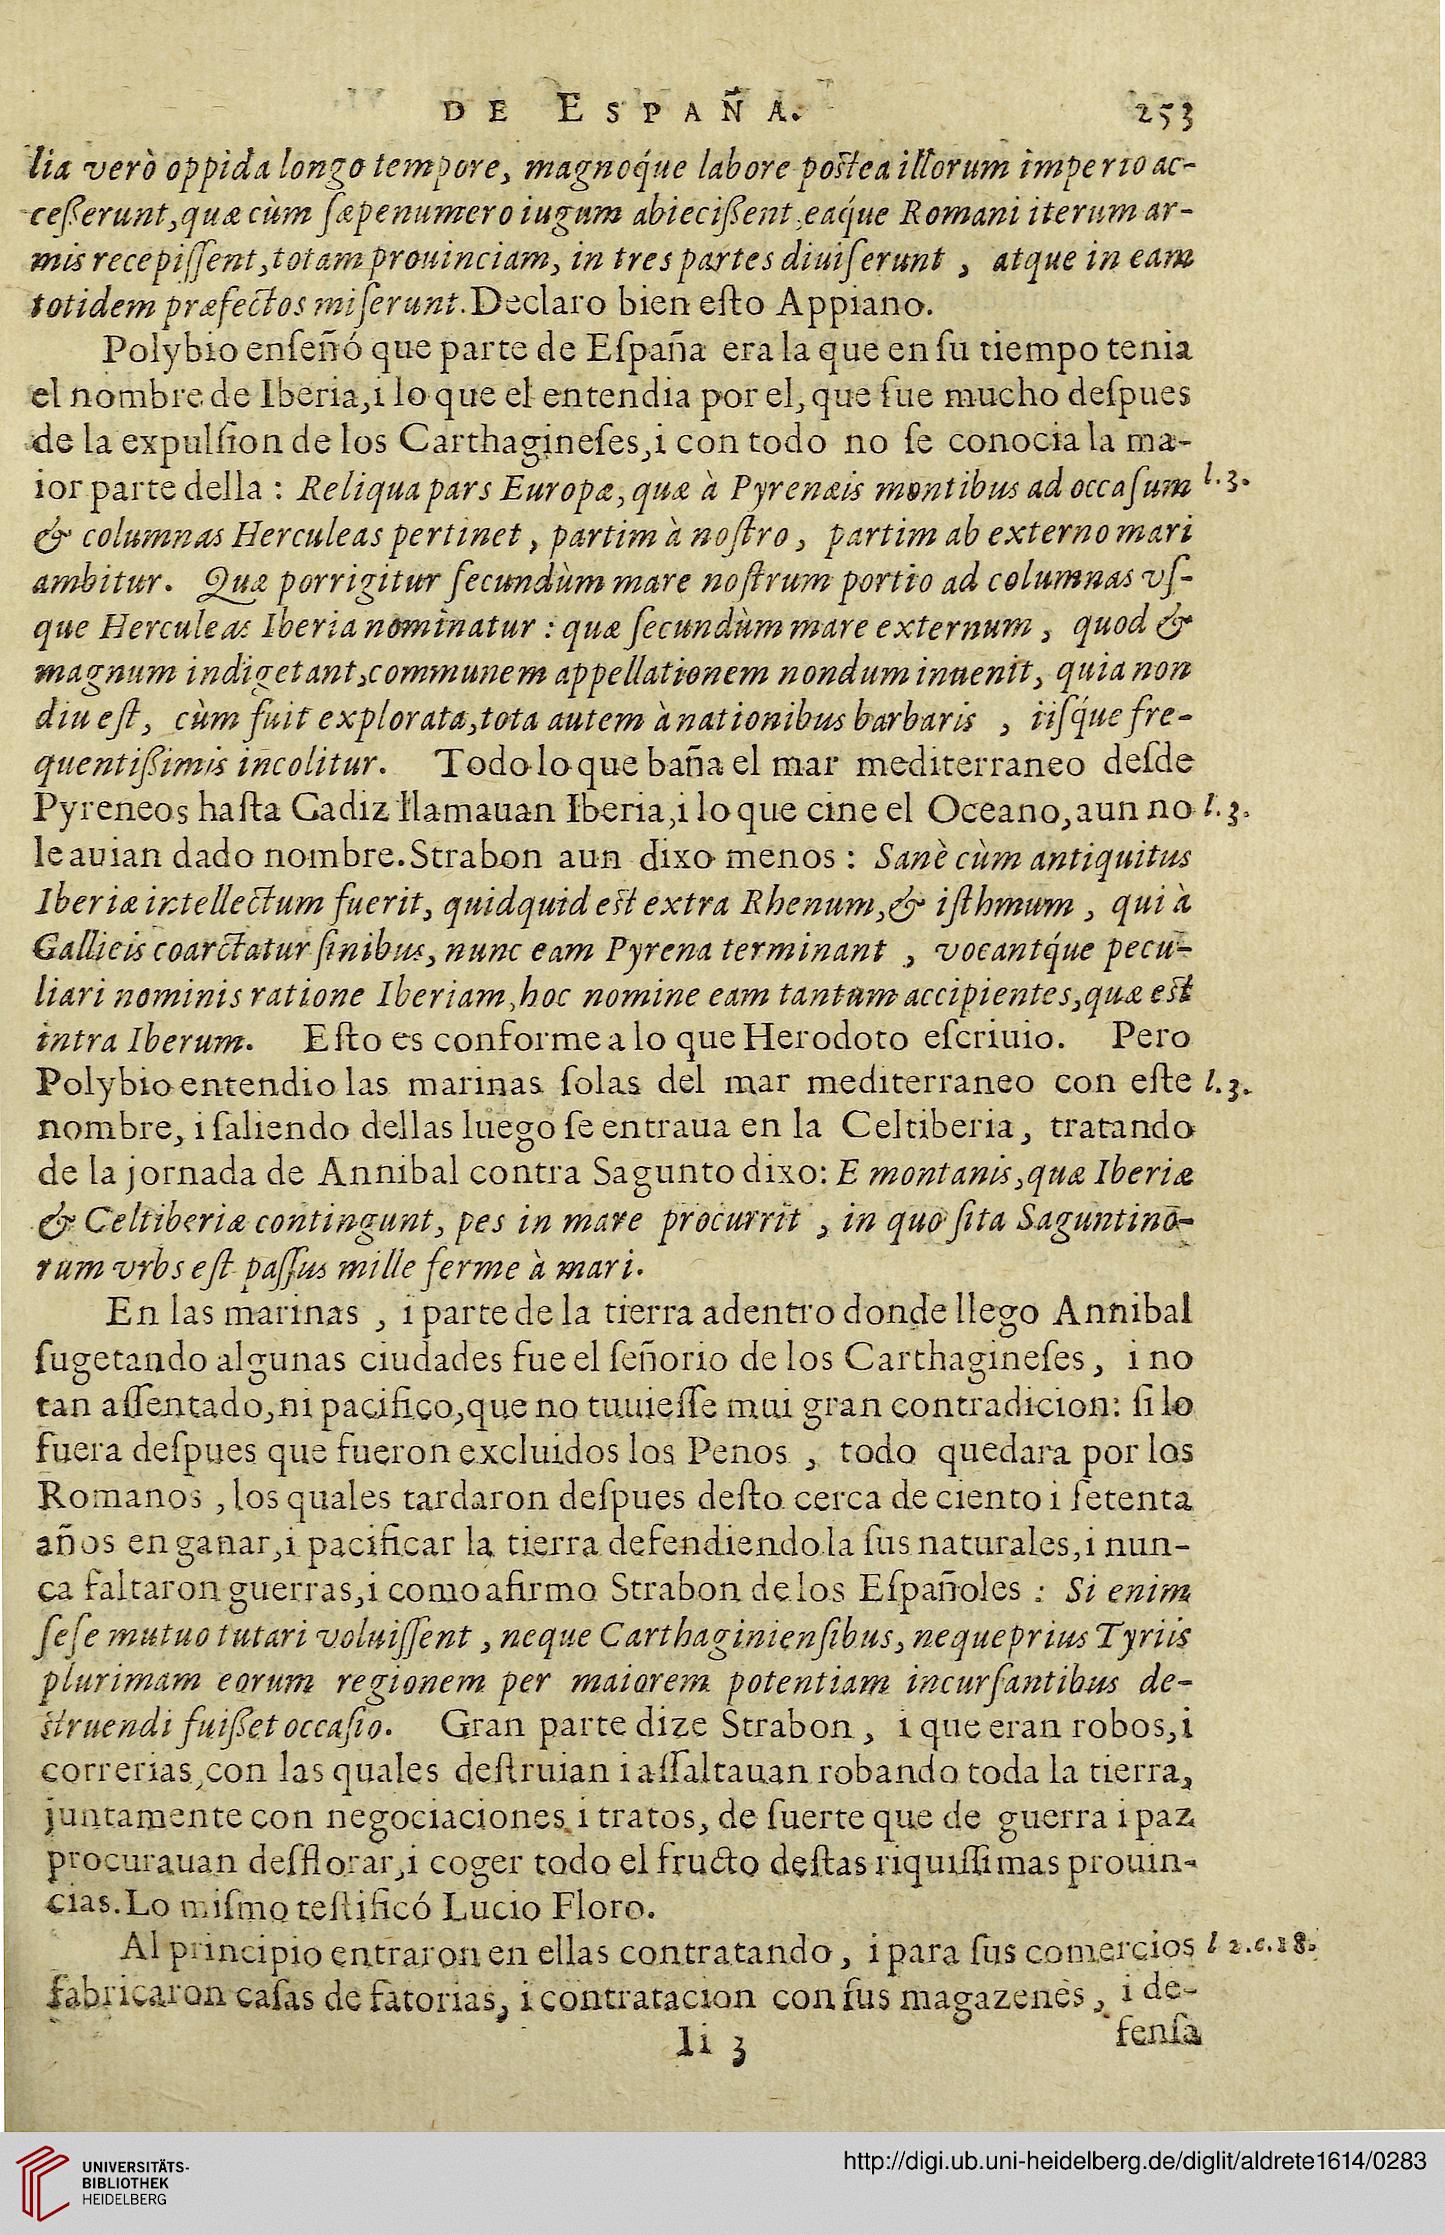 DE ESPAÑA. 253
lia verò oppida longo tempore, magnoq́ue labore postea illorum imperio ac-
ceßerunt, quæ cùm ſæpenumero iugum abiecißent, eaq́ue Romani iterum ar-
mis recepiſſent, totam prouinciam, in tres partes diuiſerunt , atque in eam
totidem præfectos miſerunt. Declaro bien eſto Appiano.
Polybio enſeñó que parte de Eſpaña era la que en ſu tiempo tenia
el nombre de Iberia, i lo que el entendia por el, que fue mucho deſpues
de la expulſion de los Carthagineſes, i con todo no ſe conocia la ma-
ior parte della : Reliqua pars Europæ, quæ à Pyrenæis montibus ad occaſum l. 3.
& columnas Herculeas pertinet , partim à noſtro , partim ab externo mari
ambitur. Quæ porrigitur ſecundùm mare noſtrum portio ad columnas vſ-
que Herculeas Iberia nominatur : quæ ſecundùm mare externum , quod &
magnum indigetant, communem appellationem nondum inuenit, quia non
diu eſt, cùm fuit explorata, tota autem à nationibus barbaris , iiſq́ue fre-
quentißimis incolitur. Todo lo que baña el mar mediterraneo deſde
Pyreneos haſta Cadiz llamauan Iberia, i lo que cine el Oceano, aun no l. 3.
le auian dado nombre. Strabon aun dixo menos : Sanè cùm antiquitus
Iberiæ intellectum fuerit, quidquid est extra Rhenum, & iſthmum , qui à
Gallicis coarctatur ſinibus, nunc eam Pyrena terminant , vocantq́ue pecu-
liari nominis ratione Iberiam, hoc nomine eam tantum accipientes, quæ est
intra Iberum. Eſto es conforme a lo que Herodoto eſcriuio. Pero
Polybio entendio las marinas ſolas del mar mediterraneo con eſte l. 3.
nombre, i ſaliendo dellas luego ſe entraua en la Celtiberia, tratando
de la jornada de Annibal contra Sagunto dixo: E montanis, quæ Iberiæ
& Celtiberiæ contingunt, pes in mare procurrit , in quo ſita Saguntino-
rum vrbs eſt paſſus mille ferme à mari.
En las marinas , i parte de la tierra adentro donde llego Annibal
ſugetando algunas ciudades fue el ſeñorio de los Carthagineſes, i no
tan aſſentado, ni pacifico, que no tuuieſſe mui gran contradicion: ſi lo
fuera deſpues que fueron excluidos los Penos , todo quedara por los
Romanos , los quales tardaron deſpues deſto cerca de ciento i ſetenta
años en ganar, i pacificar la tierra defendiendola ſus naturales, i nun-
ca faltaron guerras, i como afirmo Strabon de los Eſpañoles : Si enim
ſeſe mutuo tutari voluiſſent , neque Carthaginienſibus, neque prius Tyriis
plurimam eorum regionem per maiorem potentiam incurſantibus de-
struendi fuißet occaſio. Gran parte dize Strabon , i que eran robos, i
correrias, con las quales deſtruian i aſſaltauan robando toda la tierra,
juntamente con negociaciones i tratos, de ſuerte que de guerra i paz
procurauan deſflorar, i coger todo el fructo deſtas riquiſſimas prouin-
cias. Lo miſmo teſtificó Lucio Floro.
Al principio entraron en ellas contratando , i para ſus comercios l 2.c.18.
fabricaron caſas de fatorias, i contratacion con ſus magazenes , i de-
Ii 3 fenſa
UNIVERSITÄTS-
BIBLIOTHEK
HEIDELBERG
http://digi.ub.uni-heidelberg.de/diglit/aldrete1614/0283